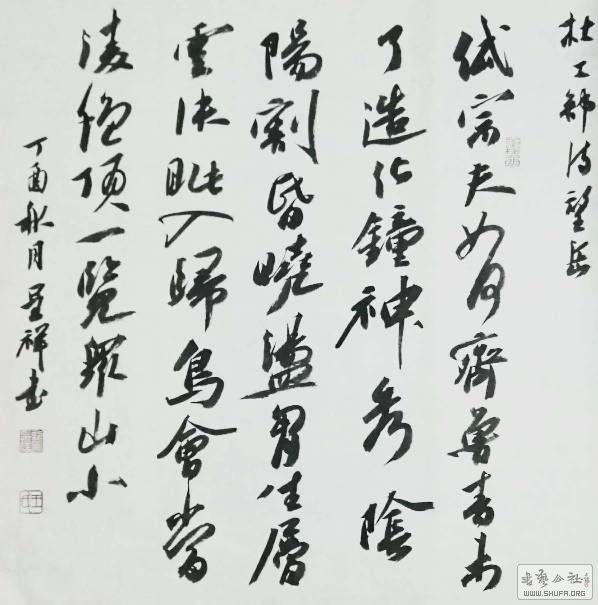 杜工部诗望岳
岱宗夫如何齊魯青未
了造化鐘神秀陰
陽割昏曉盪胷生層
雲決眦入歸鳥會當
凌絕頂一覽眾山小
丁酉秋月呈祥书
书艺公社
WWW.SHUFA.ORG